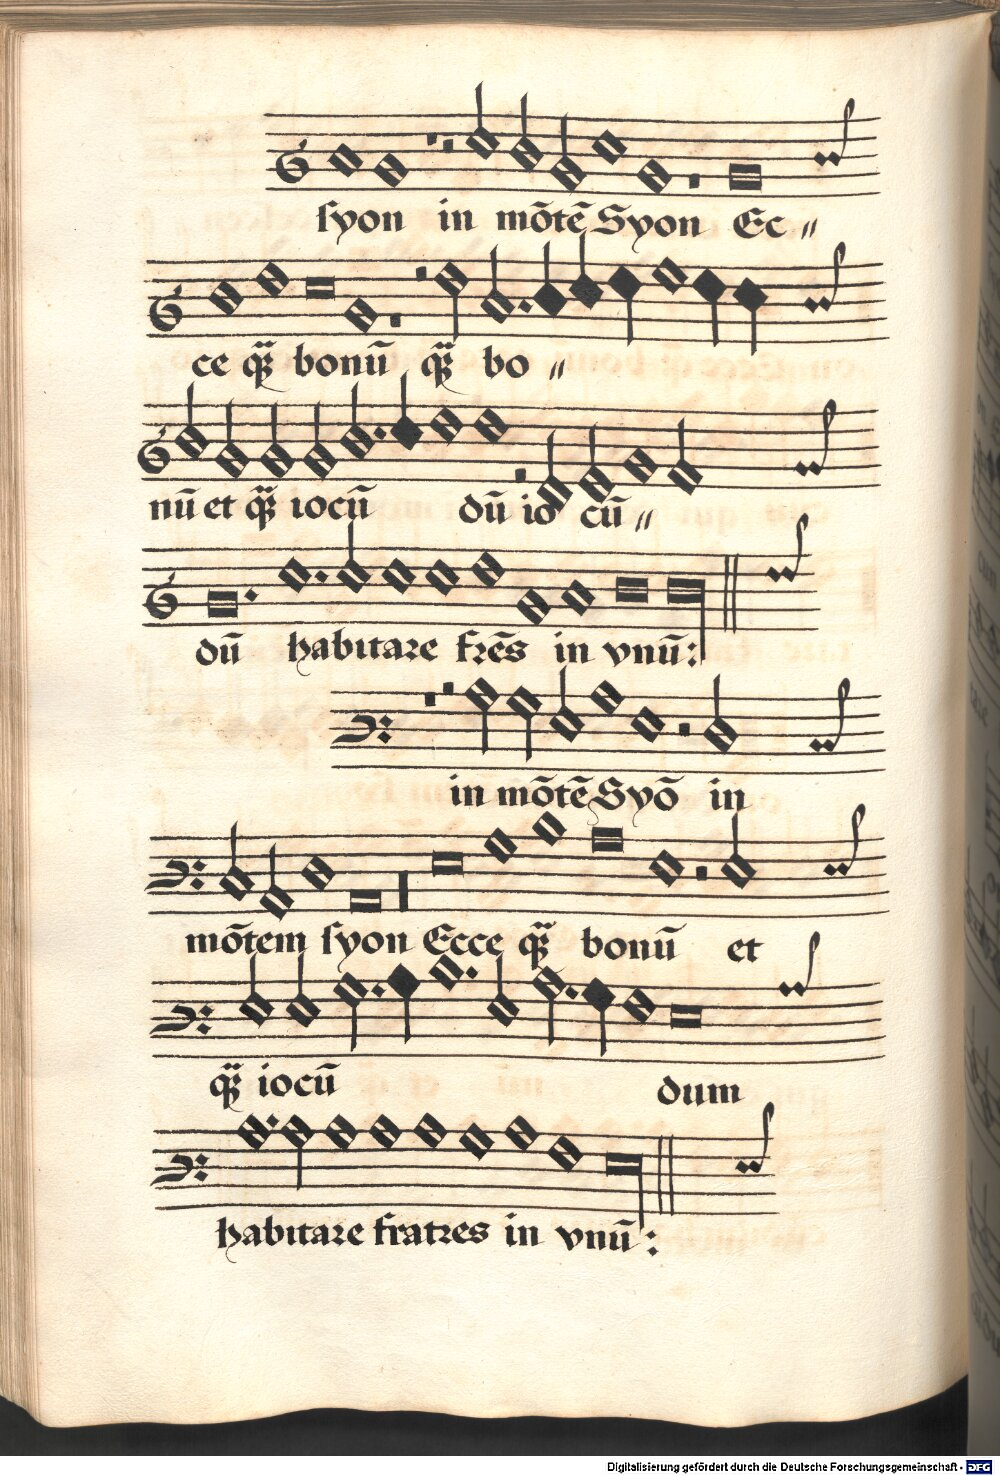 syon in mõtẽ Syon Ec〃
ce q̃ȝ bonũ q̃ȝ bo〃
nũ et q̃ȝ iocũ dũ io cũ〃
dũ habitare frẽs in vnũ:
in mõtẽ Syõ in
mõtem syon Ecce q̃ȝ bonũ et
q̃ȝ iocũ dum
habitare fratres in vnũ:
Digitalisierung gefördert durch die Deutsche Forschungsgemeinschaft - DFG